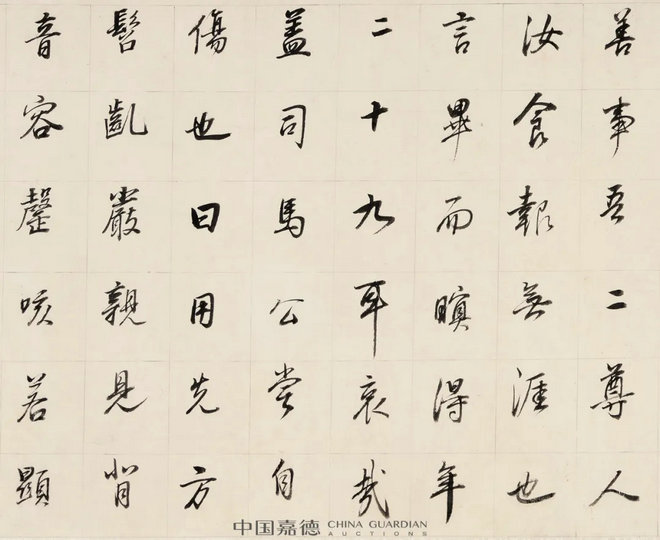 善事吾二尊人
汝食報無涯也
言畢而瞑得年
二十九耳哀哉
蓋司馬公嘗自
傷也曰用先方
髫齔嚴親見背
音容謦咳若顯
中国嘉德 CHINA GUARDIAN
AUCTIONS